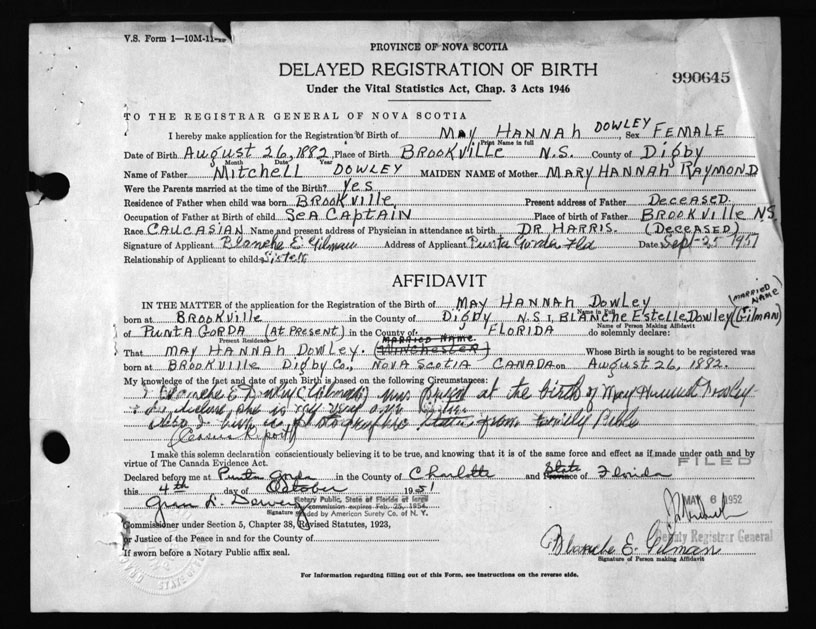 V.S. Form 1—10M-11-
PROVINCE OF NOVA SCOTIA
DELAYED REGISTRATION OF BIRTH
990645
Under the Vital Statistics Act, Chap. 3 Acts 1946
TO THE REGISTRAR GENERAL OF NOVA SCOTIA
I hereby make application for the Registration of Birth of MAY HANNAH DOWLEY, Sex FEMALE
Print Name in full
Date of Birth August 26, 1882, Place of Birth BROOKVILLE N.S. County of Digby
Month Date Year
Name of Father Mitchell DOWLEY MAIDEN NAME of Mother MARY HANNAH RAYMOND
Were the Parents married at the time of the Birth? Yes
Residence of Father when child was born BROOKVILLE Present address of Father DECEASED
Occupation of Father at Birth of child SEA CAPTAIN Place of birth of Father BROOKVILLE NS.
Race CAUCASIAN Name and present address of Physician in attendance at birth DR. HARRIS. (DECEASED)
Signature of Applicant Blanche E. Gilman Address of Applicant Punta Gorda Fla Date Sept-25 1951
Relationship of Applicant to child Sister
AFFIDAVIT
IN THE MATTER of the application for the Registration of the Birth of MAY HANNAH DOWLEY (MARRIED NAME)
Name in Full
born at BROOKVILLE in the County of Digby N.S I, BLANCHE ESTELLE DOWLEY (GILMAN)
Name of Person Making Affidavit
of PUNTA GORDA (AT PRESENT) in the County of FLORIDA do solemnly declare:
Present Residence
MARRIED NAME.
That MAY HANNAH DOWLEY. (WINCHESTER) Whose Birth is sought to be registered was
born at BROOKVILLE Digby Co., NOVA SCOTIA CANADA on August 26, 1882.
My knowledge of the fact and date of such Birth is based on the following Circumstances:
I Blanche E Dowley (Gilman) was present at the birth of May Hannah Dowley
she is my very own sister
Also I have photographic from Family Bible
(Census Report)
I make this solemn declaration conscientiously believing it to be true, and knowing that it is of the same force and effect as if made under oath and by
virtue of The Canada Evidence Act.
FILED
Declared before me at Punta Gorda in the County of Charlotte and State Province of Florida
this 4th day of October 1951
MAY 6 1952
Notary Public, State of Florida at large
commission expires Feb. 25, 1954.
Signature
Bonded by American Surety Co. of N. Y.
Commissioner under Section 5, Chapter 38, Revised Statutes, 1923,
Deputy Registrar General
or Justice of the Peace in and for the County of
Blanche E. Gilman
If sworn before a Notary Public affix seal.
Signature of Person making Affidavit
For Information regarding filling out of this Form, see instructions on the reverse side.